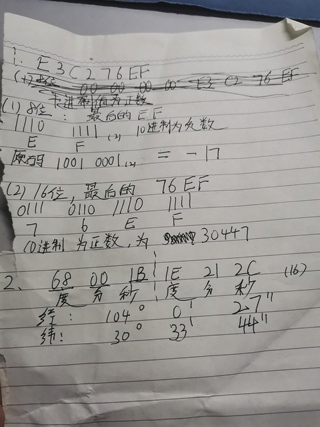 1. E3C276EF
十进制值为正数
(1) 8位: 最后的 EF
1110 1111 (2) 10进制为负数
E F
原码 1001 0001 (2) = -17
(2) 16位, 最后的 76EF
0111 0110 1110 1111
7 6 E F
10进制为正数, 为 30447
2. 68 00 1B 1E 21 2C (16)
度 分 秒 度 分 秒
经: 104° 0' 27"
纬: 30° 33' 44"